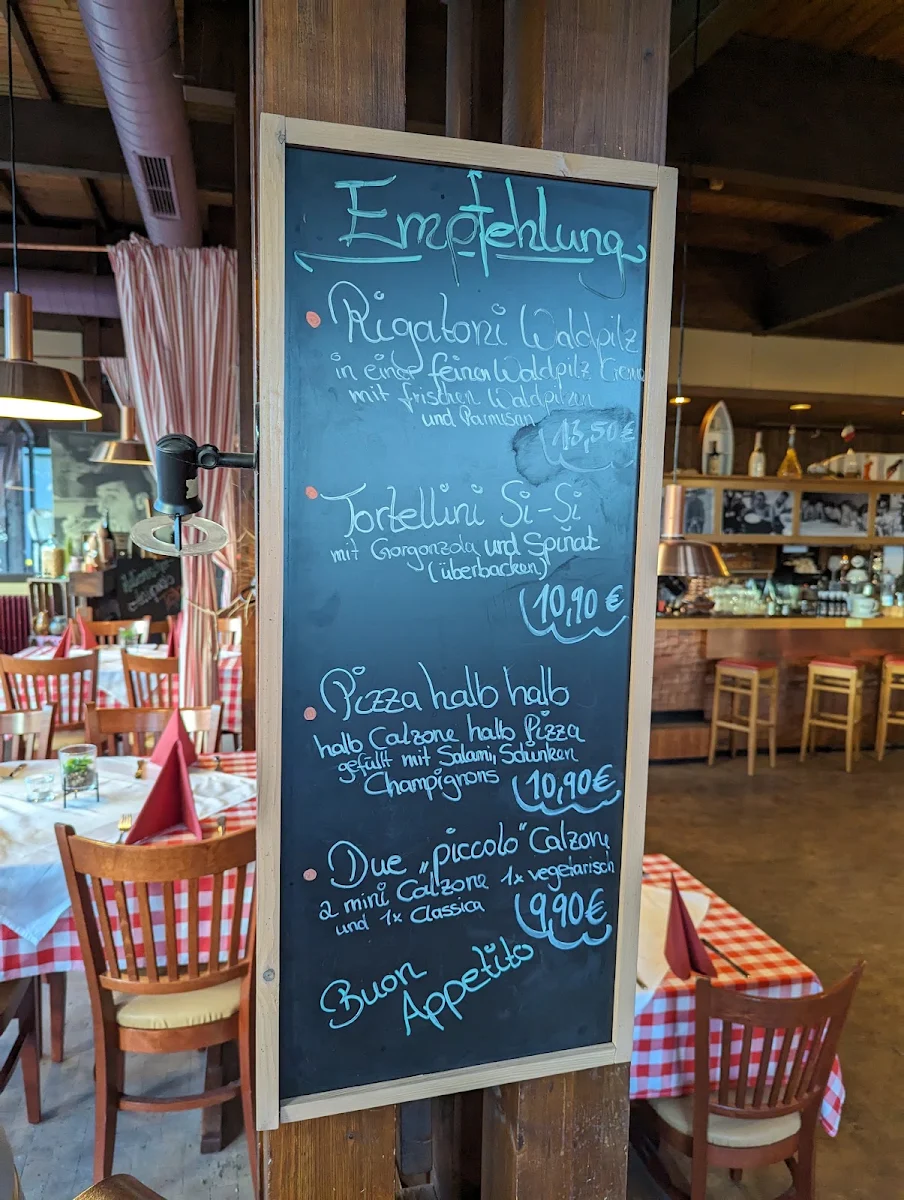 Empfehlung
Rigatoni Waldpilz
in einer feinen Waldpilz Creme
mit frischen Waldpilzen
und Parmisan
13,50€
Tortellini Si-Si
mit Gorgonzola und Spinat
(überbacken)
10,90 €
Pizza halb halb
halb Calzone halb Pizza
gefüllt mit Salami, Schinken
Champignons
10,90€
Due „piccolo" Calzone
2 mini Calzone 1x vegetarisch
und 1x Classica
9,90€
Buon
Appetito